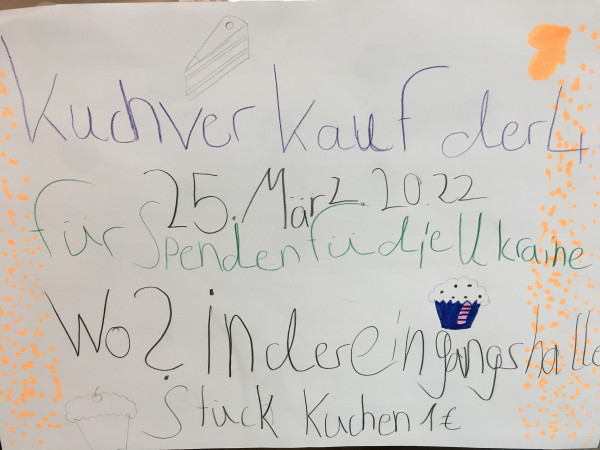 Kuchverkauf der 4
25. März. 2022
für Spenden fü die Ukraine
Wo? in der eingangshalle
Stück Kuchen 1€